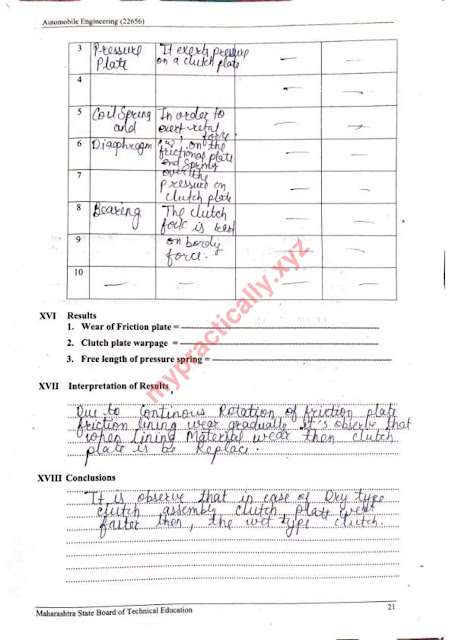 Automobile Engineering (22656)
3 Pressure Plate It exerts pressure on a clutch plate — —
4 — — — —
5 Coil Spring and In order to exert — —
6 Diaphragm on the frictional plate and Spring — —
7 over the pressure on clutch plate — —
8 Bearing The clutch fork is rest — —
9 on bordy force. — —
10 — — — —
XVI Results
1. Wear of Friction plate =
2. Clutch plate warpage =
3. Free length of pressure spring =
XVII Interpretation of Results
Due to Continous Rotation of friction plate
friction lining wear gradually it's observe that
when Lining Material wear then clutch
plate is be Replace.
XVIII Conclusions
It is observe that in case of Dry type
clutch assembly clutch plate wear
faster then, the wet type clutch.
mypractically.xyz
Maharashtra State Board of Technical Education
21